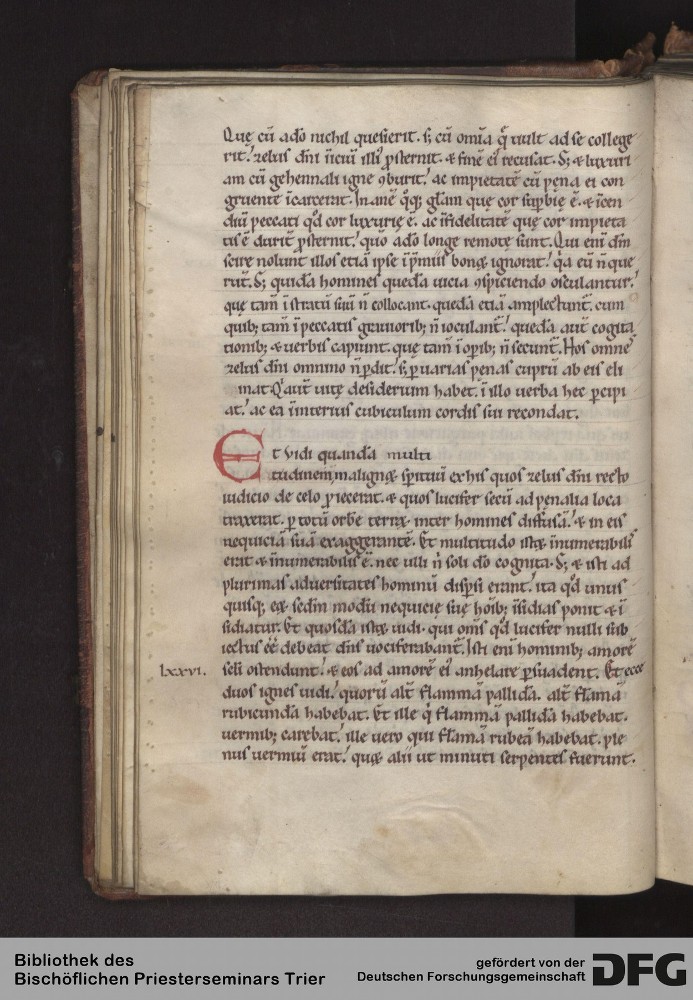 Quę cū a dō nichil quesierit. s; cū om̄ia q̄ uult ad se college
rit! zelus dn̄i ī icū illi ꝓsternit. & finē ei recusat. S; & luxuri
am cū gehennali igne ꝯburit! ac impietatē cū pena ei con
gruente īcarcerat. Inanē q̄q; gl̄am quę cor supbię ē. & īcen
diū peccati qd̄ cor luxurię ē. ac īfidelitatē quę cor impieta
tis ē durit̄ ꝓsternit! quō a dō longe remotę sunt. Qui eni dm̄
scire nolunt illos etiā ipse ī p̄miis bonę ignorat! q̄a eū n̄ que
runt. S; quidā homines quedā uicia ꝯspiciendo osculantur!
quę tam̄ ī stratū suū n̄ collocant. quedā etiā amplectunt̄. cum
quib; tam̄ ī peccatis grauiorib; n̄ ioculant̄! quedā aut̄ cogita
tionib; & uerbis capiunt. quę tam̄ ī opib; n̄ secunt̄. Hos omne
zelus dn̄i omnino n̄ ꝑdit! s; ꝑ uarias penas cuprū ab eis eli
mat. Q̇ aut̄ uitę desiderium habet. ī illo uerba hec ꝑcipi
at! ac ea ī interius cubiculum cordis sui recondat.
Et vidi quandā multi
tudinem malignę spirituū ex his quos zelus dn̄i recto
iudicio de celo ꝓiecerat. & quos lucifer secū ad penalia loca
traxerat. ꝑ totū orbē terrę inter homines diffusā! & in eis
nequiciā suā exaggerantē. Et multitudo istę īnumerabilis
erit & īnumerabilis ē. nec ulli n̄ soli dō cognita. S; & isti ad
plurimas aduersitates hominū disp̄si erant! ita qd̄ unus
quisq; eę sedm̄ modū nequicię suę hōib; īsidias ponit & ī
sidiatur. Et quosdā istę uidi. qui om̄s qd̄ lucifer nulli sub
iectus ēē debeat dn̄s uociferabant̄. Isti eni hominib; amorē
lxxvi. scli ostendunt! & eos ad amorē ei anhelare ꝑsuadent. Et ecce
duos ignes uidi! quorū alt̄ flammā pallidā. alt̄ flāmā
rubicundā habebat. Et ille q̇ flammā pallidā habebat.
uermib; carebat! ille uero qui flāmā rubeā habebat. ple
nus uermiū erat! quę alii ut minuti serpentes fuerunt.
Bibliothek des
Bischöflichen Priesterseminars Trier
gefördert von der
Deutschen Forschungsgemeinschaft
DFG